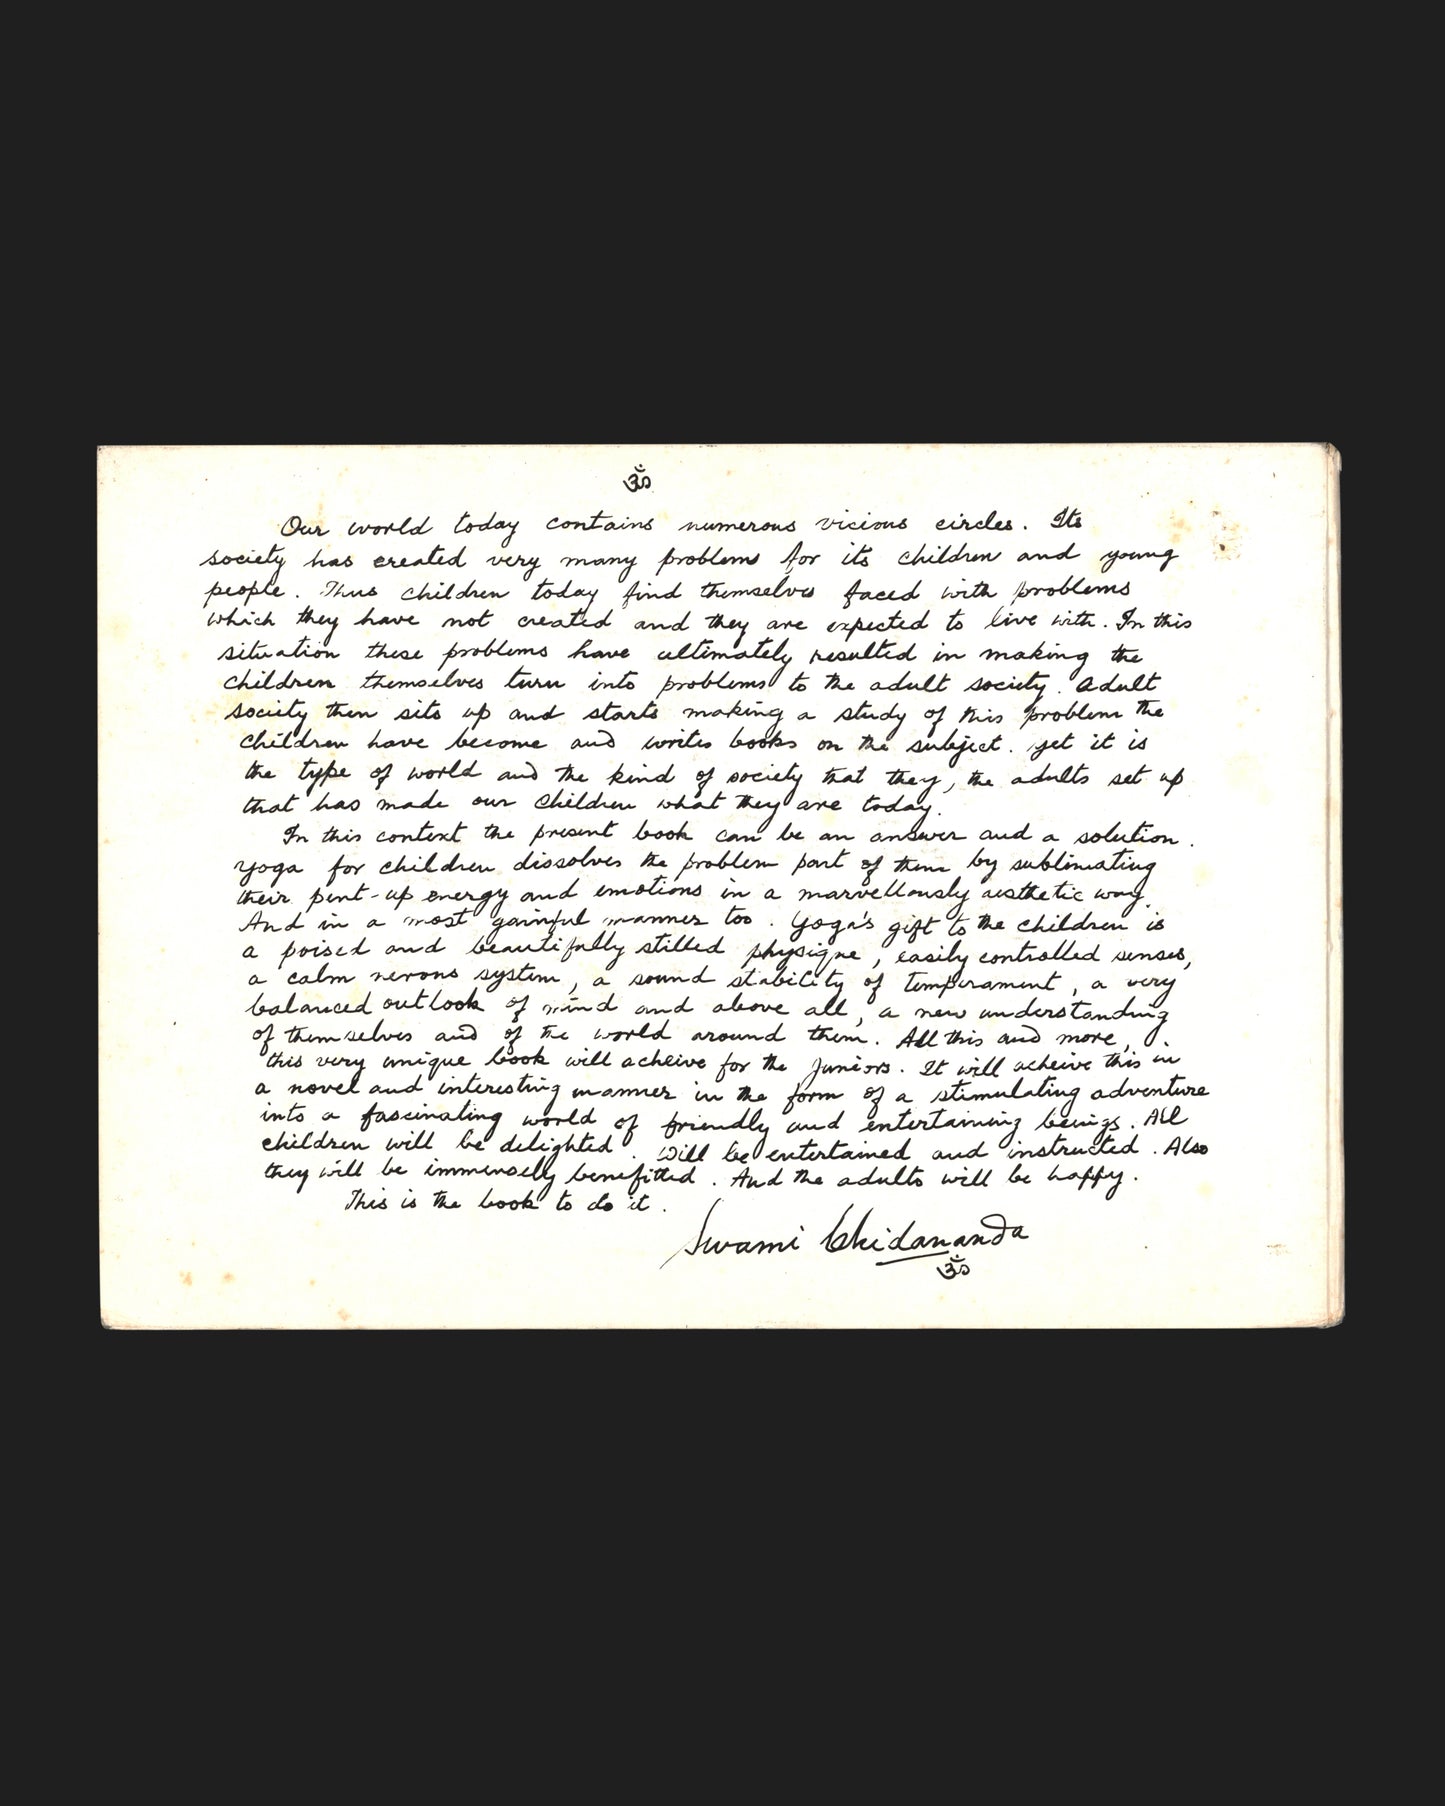 ॐ
Our world today contains numerous vicious circles. Its
society has created very many problems for its children and young
people. Thus children today find themselves faced with problems
which they have not created and they are expected to live with. In this
situation these problems have ultimately resulted in making the
children themselves turn into problems to the adult society. Adult
society then sits up and starts making a study of this problem the
children have become and writes books on the subject. yet it is
the type of world and the kind of society that they, the adults set up
that has made our children what they are today.
In this context the present book can be an answer and a solution.
Yoga for children dissolves the problem part of them by sublimating
their pent-up energy and emotions in a marvellously aesthetic way.
And in a most gainful manner too. Yoga's gift to the children is
a poised and beautifully stilled physique, easily controlled senses,
a calm nervous system, a sound stability of temperament, a very
balanced outlook of mind and above all, a new understanding
of themselves and of the world around them. All this and more,
this very unique book will acheive for the Juniors. It will acheive this in
a novel and interesting manner in the form of a stimulating adventure
into a fascinating world of friendly and entertaining beings. All
children will be delighted. Will be entertained and instructed. Also
they will be immensely benefitted. And the adults will be happy.
This is the book to do it.
Swami Chidananda
ॐ